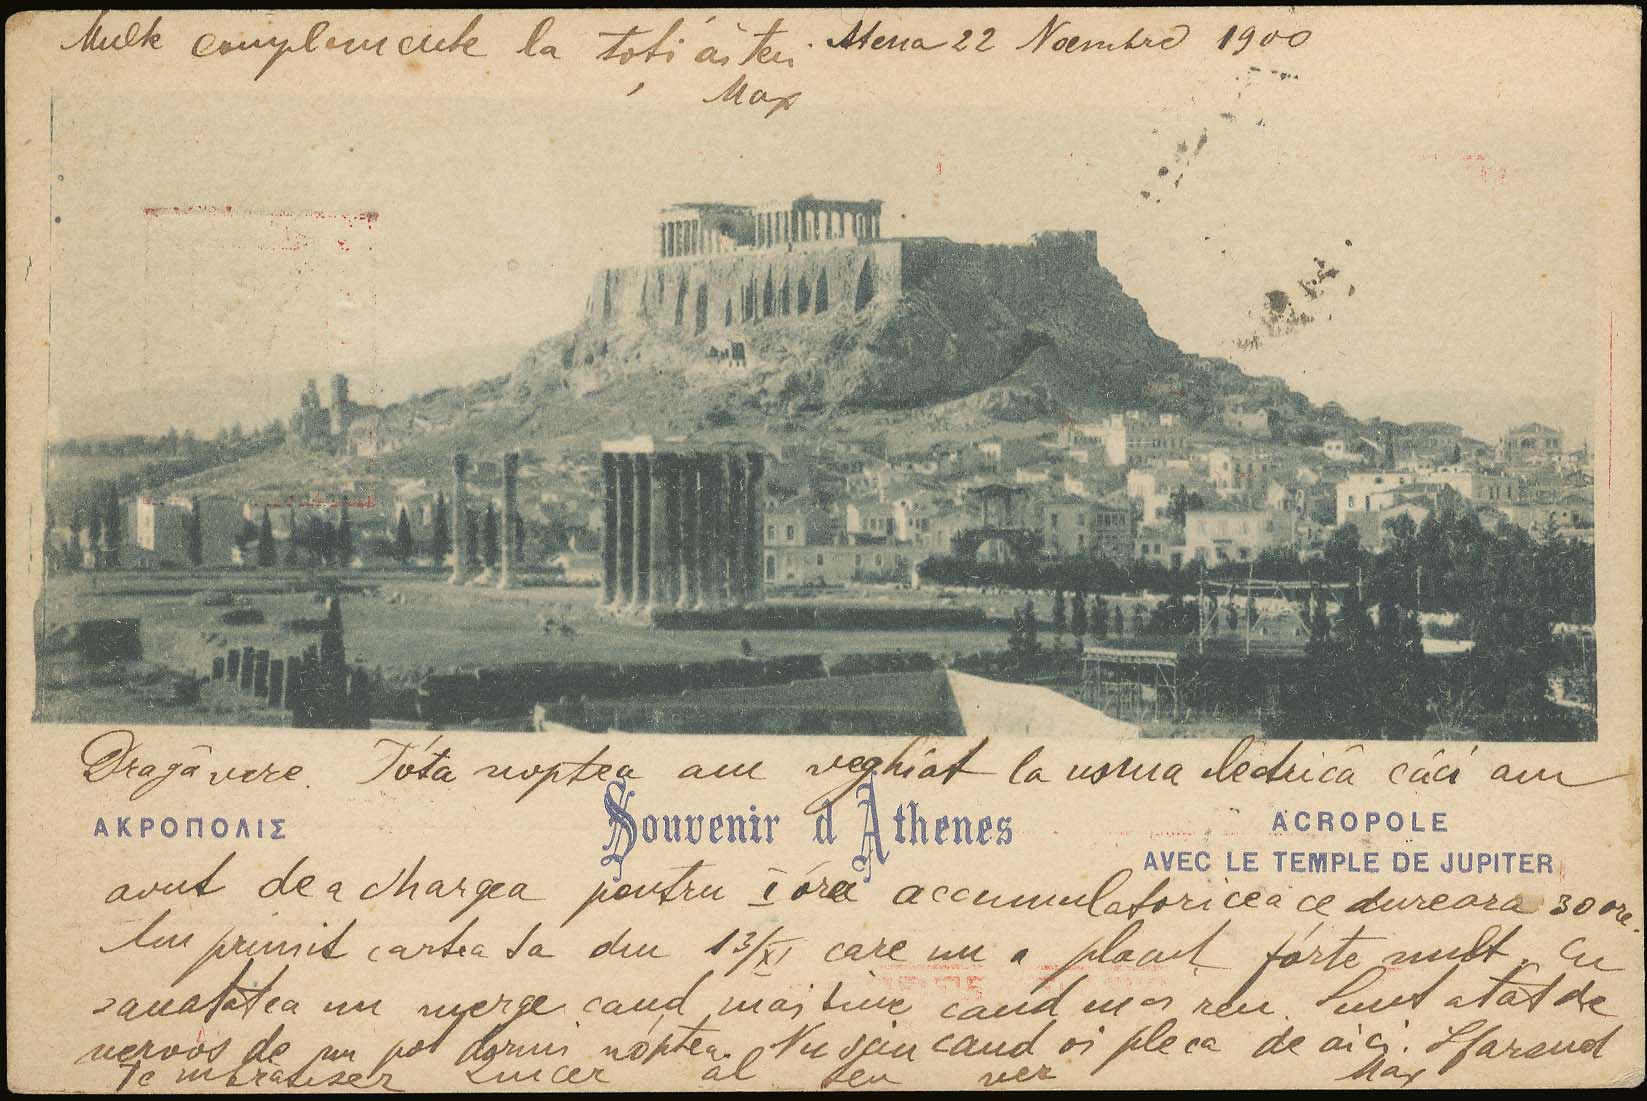 Multe complemente la toti ai tei. Atena 22 Noembre 1900
Max
Dragă vere. Tóta noptea am veghiat la usina lectrică căci am
ΑΚΡΟΠΟΛΙΣ
Souvenir d'Athenes
ACROPOLE
AVEC LE TEMPLE DE JUPITER
avut de a chargea pentru I óra accumulatoricea ce dureara 30 ore.
Am primit cartea ta din 13/XI care mi a placut fórte mult. Cu
sanatatea mi merge cand mai bine cand mai reu. Sunt atât de
nervos de nu pot dormi nóptea. Nu sciu cand oi pleca de aici. Sfarsind
Te imbratisez sincer al teu ver Max